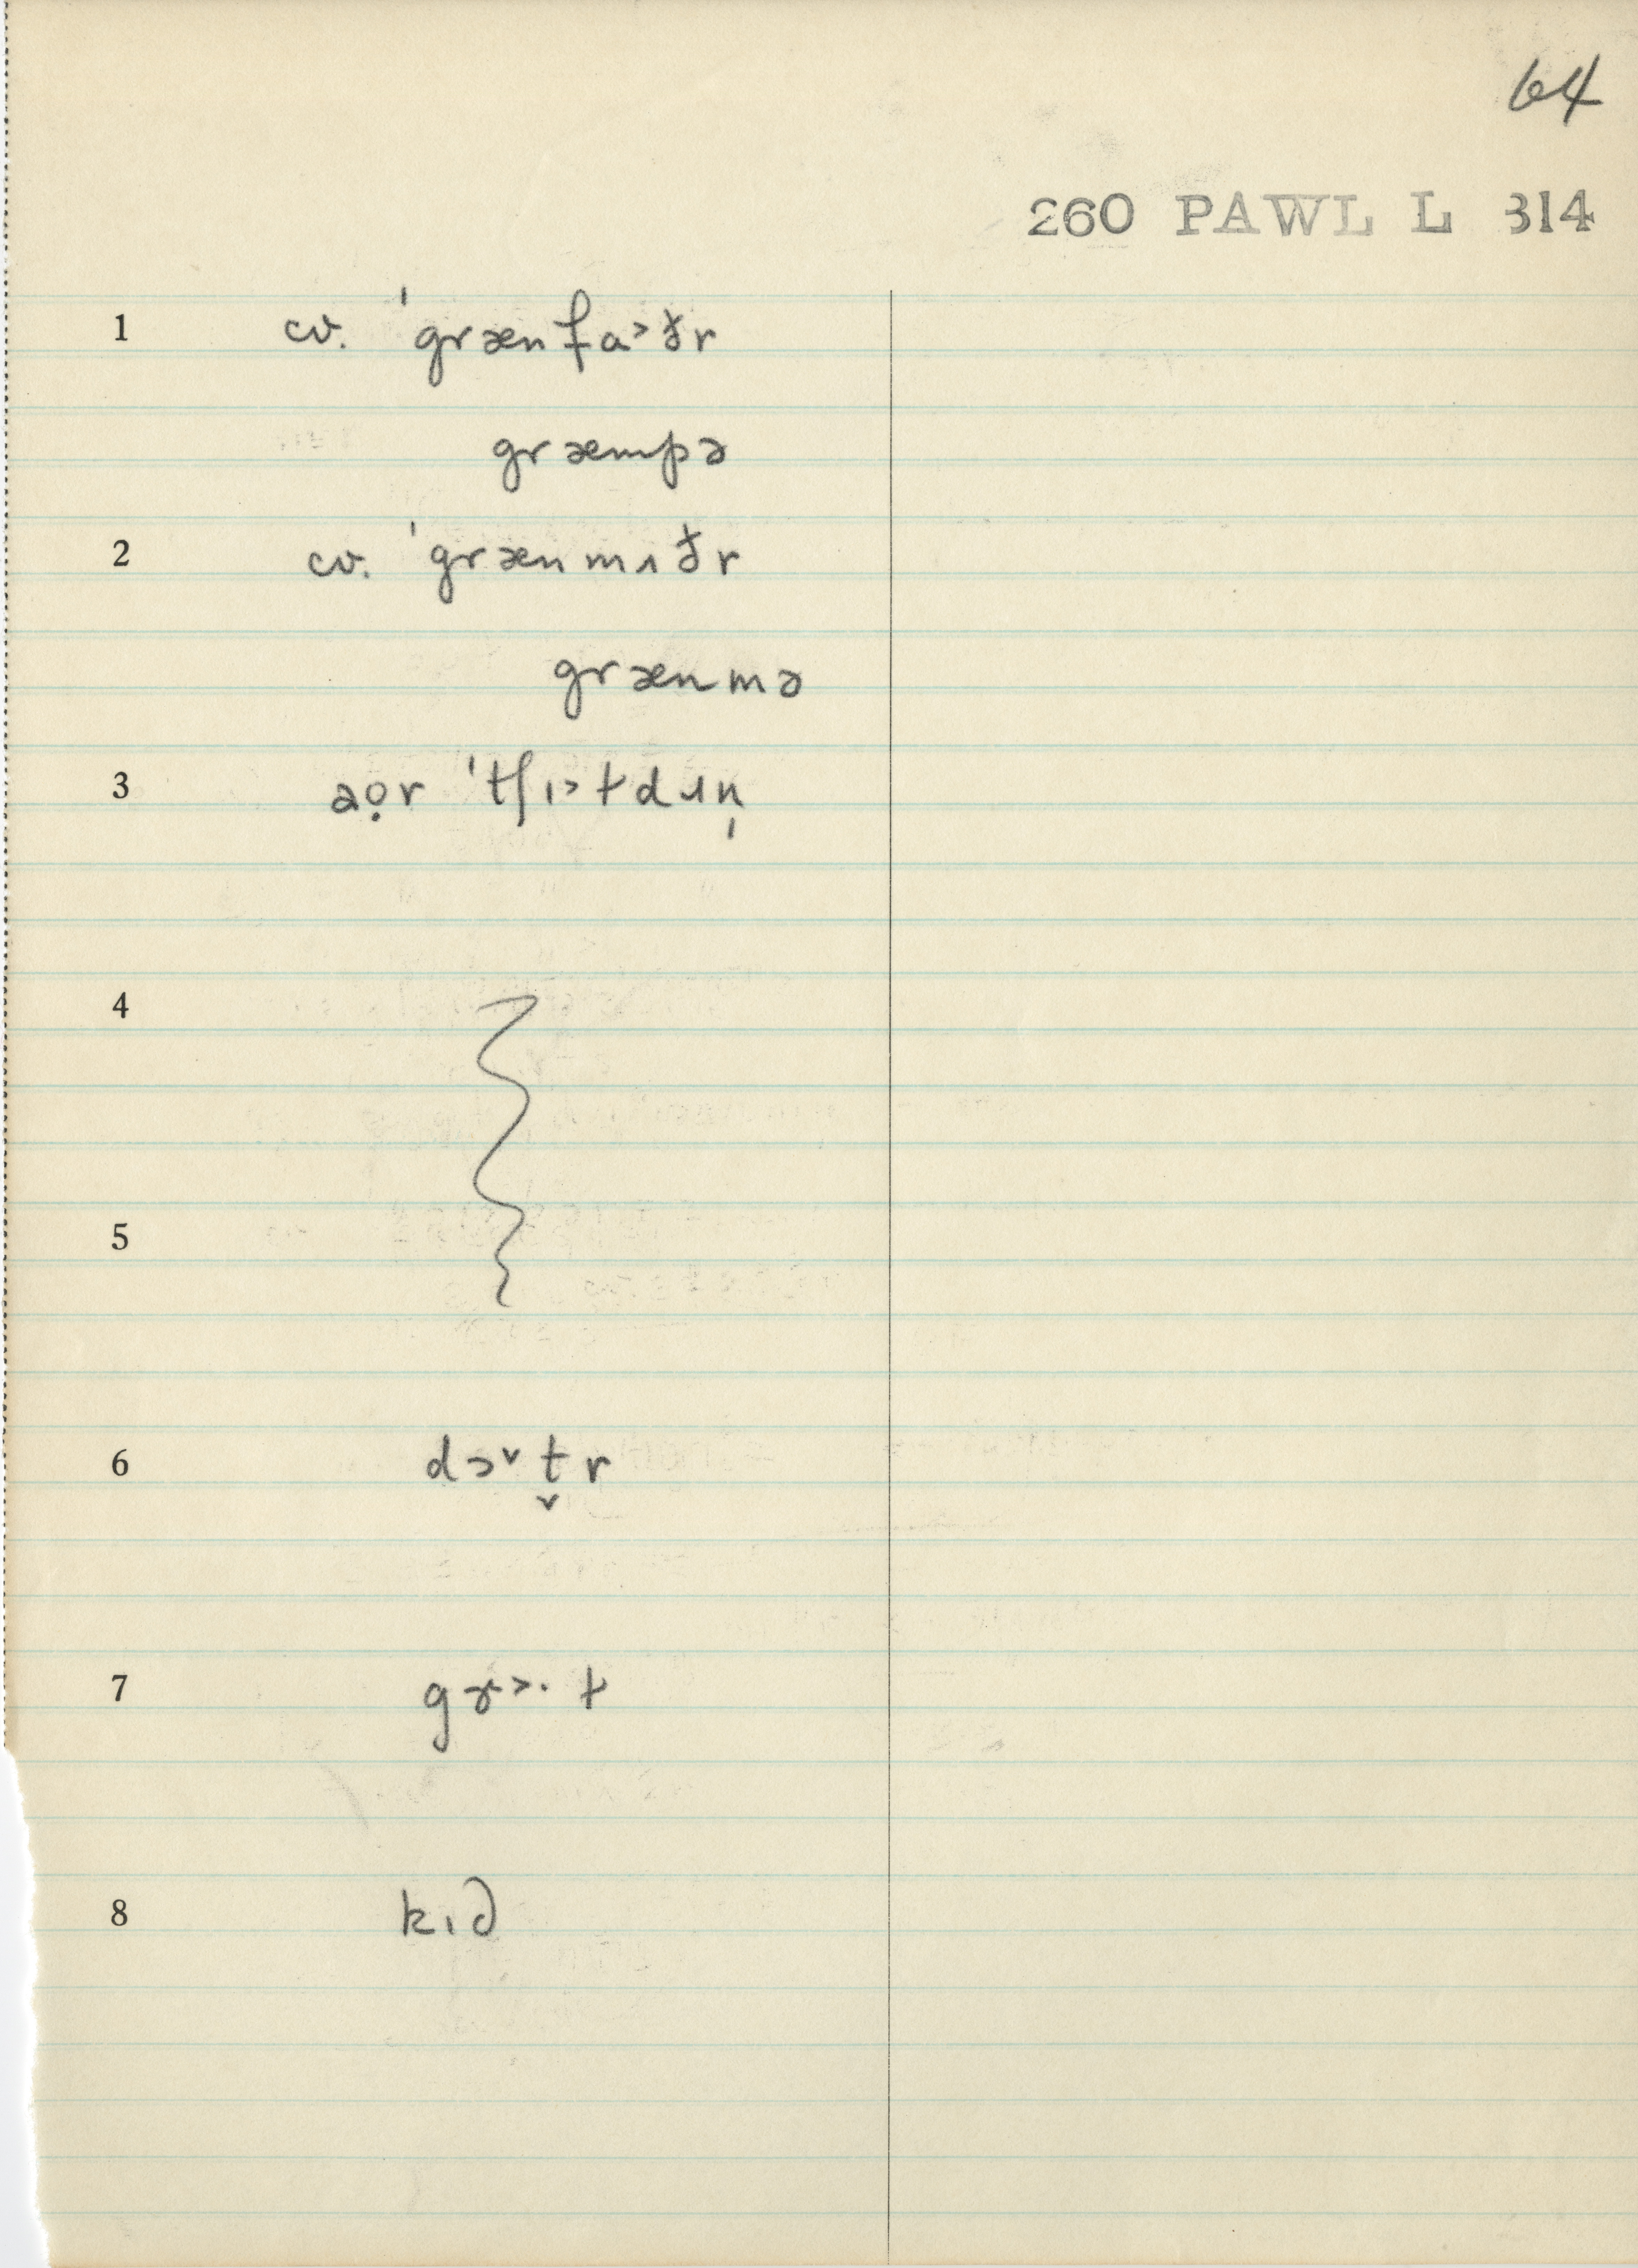 64
260 PAWL L 314
1 cv. ˈgrænfa˃ðr
græmpə
2 cv. ˈgrænmʌðr
grænmə
3 aọr ˈtʃɪ˃ɫdɹn̩
4
5
6 dɔ˅t̬r
7 gɤ˃·ɫ
8 kɪd